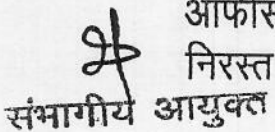 आफास
निरस्त
संभागीय आयुक्त